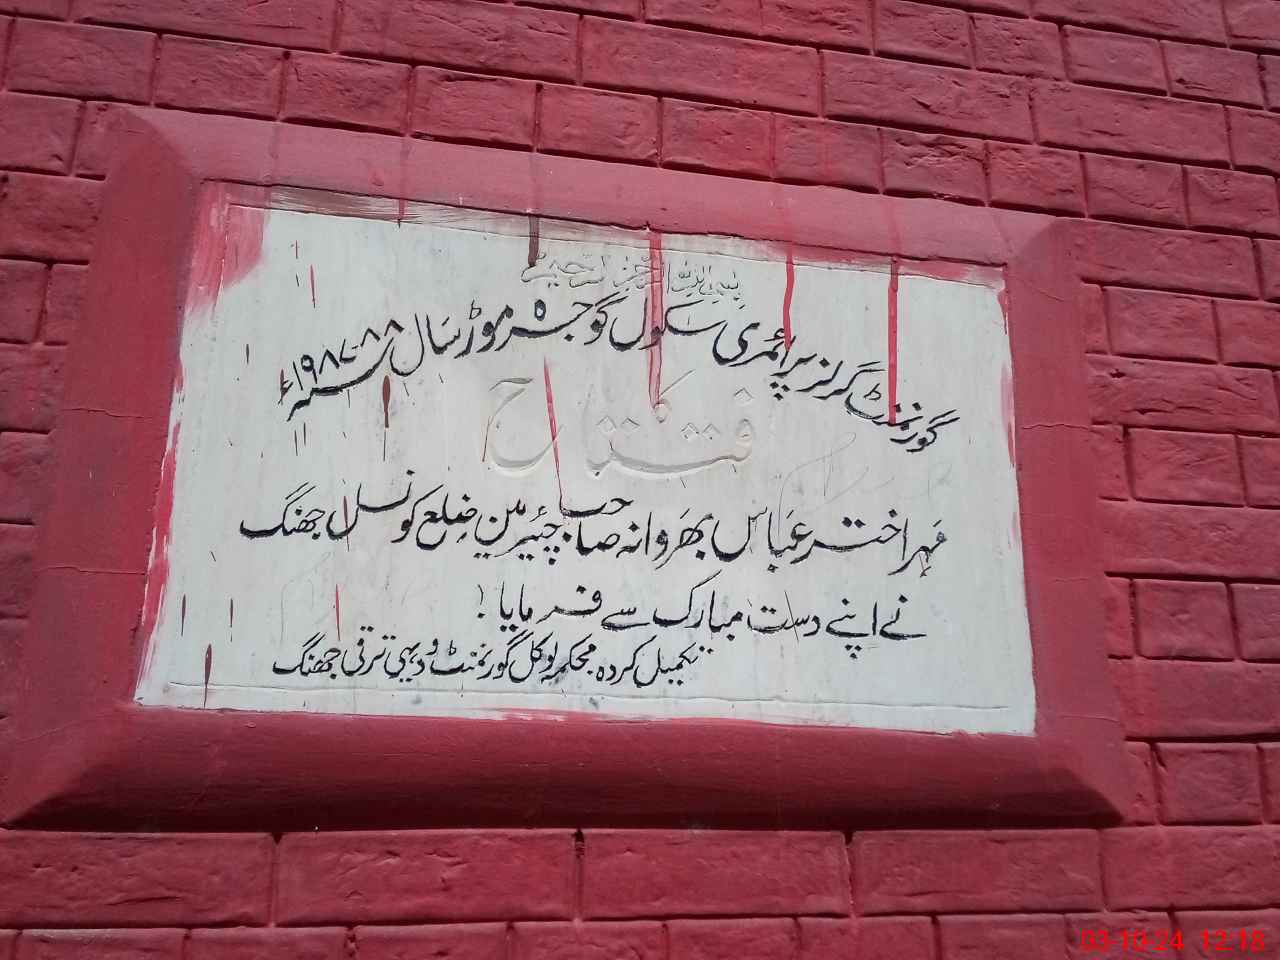 بسم اللہ الرحمٰن الرحیم
گورنمنٹ گرلز پرائمری سکول گوجرہ موڑ سال ۸۸-۱۹۸۷ء
افتتاح
مہر اختر عباس بھروانہ صاحب چئیرمین ضلع کونسل جھنگ
نے اپنے دست مبارک سے فرمایا !
تکمیل کردہ محکمہ لوکل گورنمنٹ و دیہی ترقی جھنگ
03-10-24 12:18